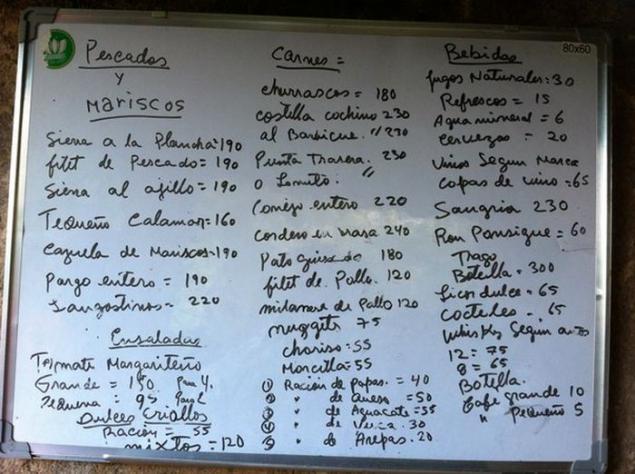 Pescados
y
Mariscos
Siena a la Plancha=190
filet de Pescado=190
Siena al ajillo=190
Tequeño Calamar=160
Cazuela de Mariscos=190
Pargo entero = 190
Langostinos = 220
Ensaladas
Tomate Margariteño
Grande = 190 Para 4.
Pequena = 95 Para 2
Dulces Criollos
Ración = 55
mixtos = 120
Carnes =
churrascos = 180
costilla cochino 230
al Barbicue. " 230
Punta Trasera. 230
o Lomito. "
Conejo entero 220
Cordero en vara 240
Pato guisado 180
filet de Pollo. 120
milanesa de Pollo 120
nuggets 75
Choriso = 55
Morcilla = 55
① Ración de Papas. = 40
② " de Queso = 50
③ " de Aguacate = 35
④ " de Yuca. 30
⑤ " de Arepas. 20
80x60
Bebidas
Jugos Naturales: 30
Refrescos = 15
Agua mineral = 6
Cervezas = 20
Vinos Segun Marca
Copas de vino = 65
Sangria 230
Ron Pansigue = 60
Trago
Botella. 300
Licor dulce. 65
Cocteles. 65
Whisky Segun años
12 = 75
8 = 65
Botella.
Cafe grande 10
" Pequeño 5